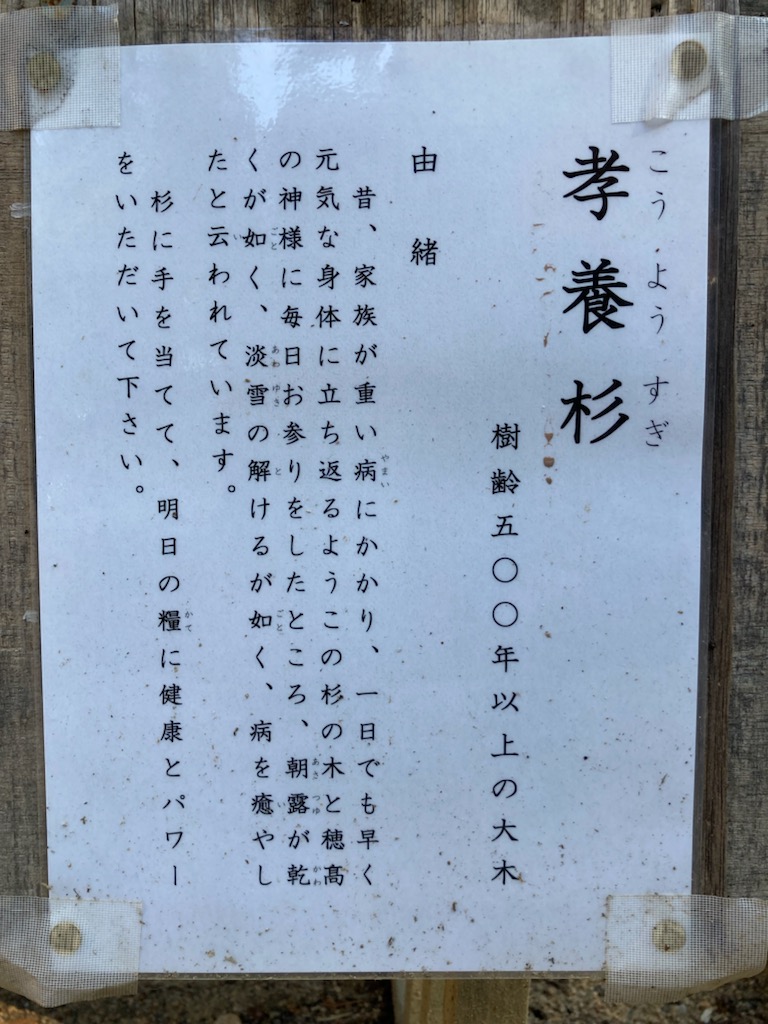 こうようすぎ
孝養杉
樹齢五〇〇年以上の大木
由緒
昔、家族が重い病にかかり、一日でも早く
やまい
元気な身体に立ち返るようこの杉の木と穂髙
の神様に毎日お参りをしたところ、朝露が乾
あさつゆ
かわ
くが如く、淡雪の解けるが如く、病を癒やし
ごと
あわゆき
と
ごと
い
たと云われています。
い
杉に手を当てて、明日の糧に健康とパワー
かて
をいただいて下さい。